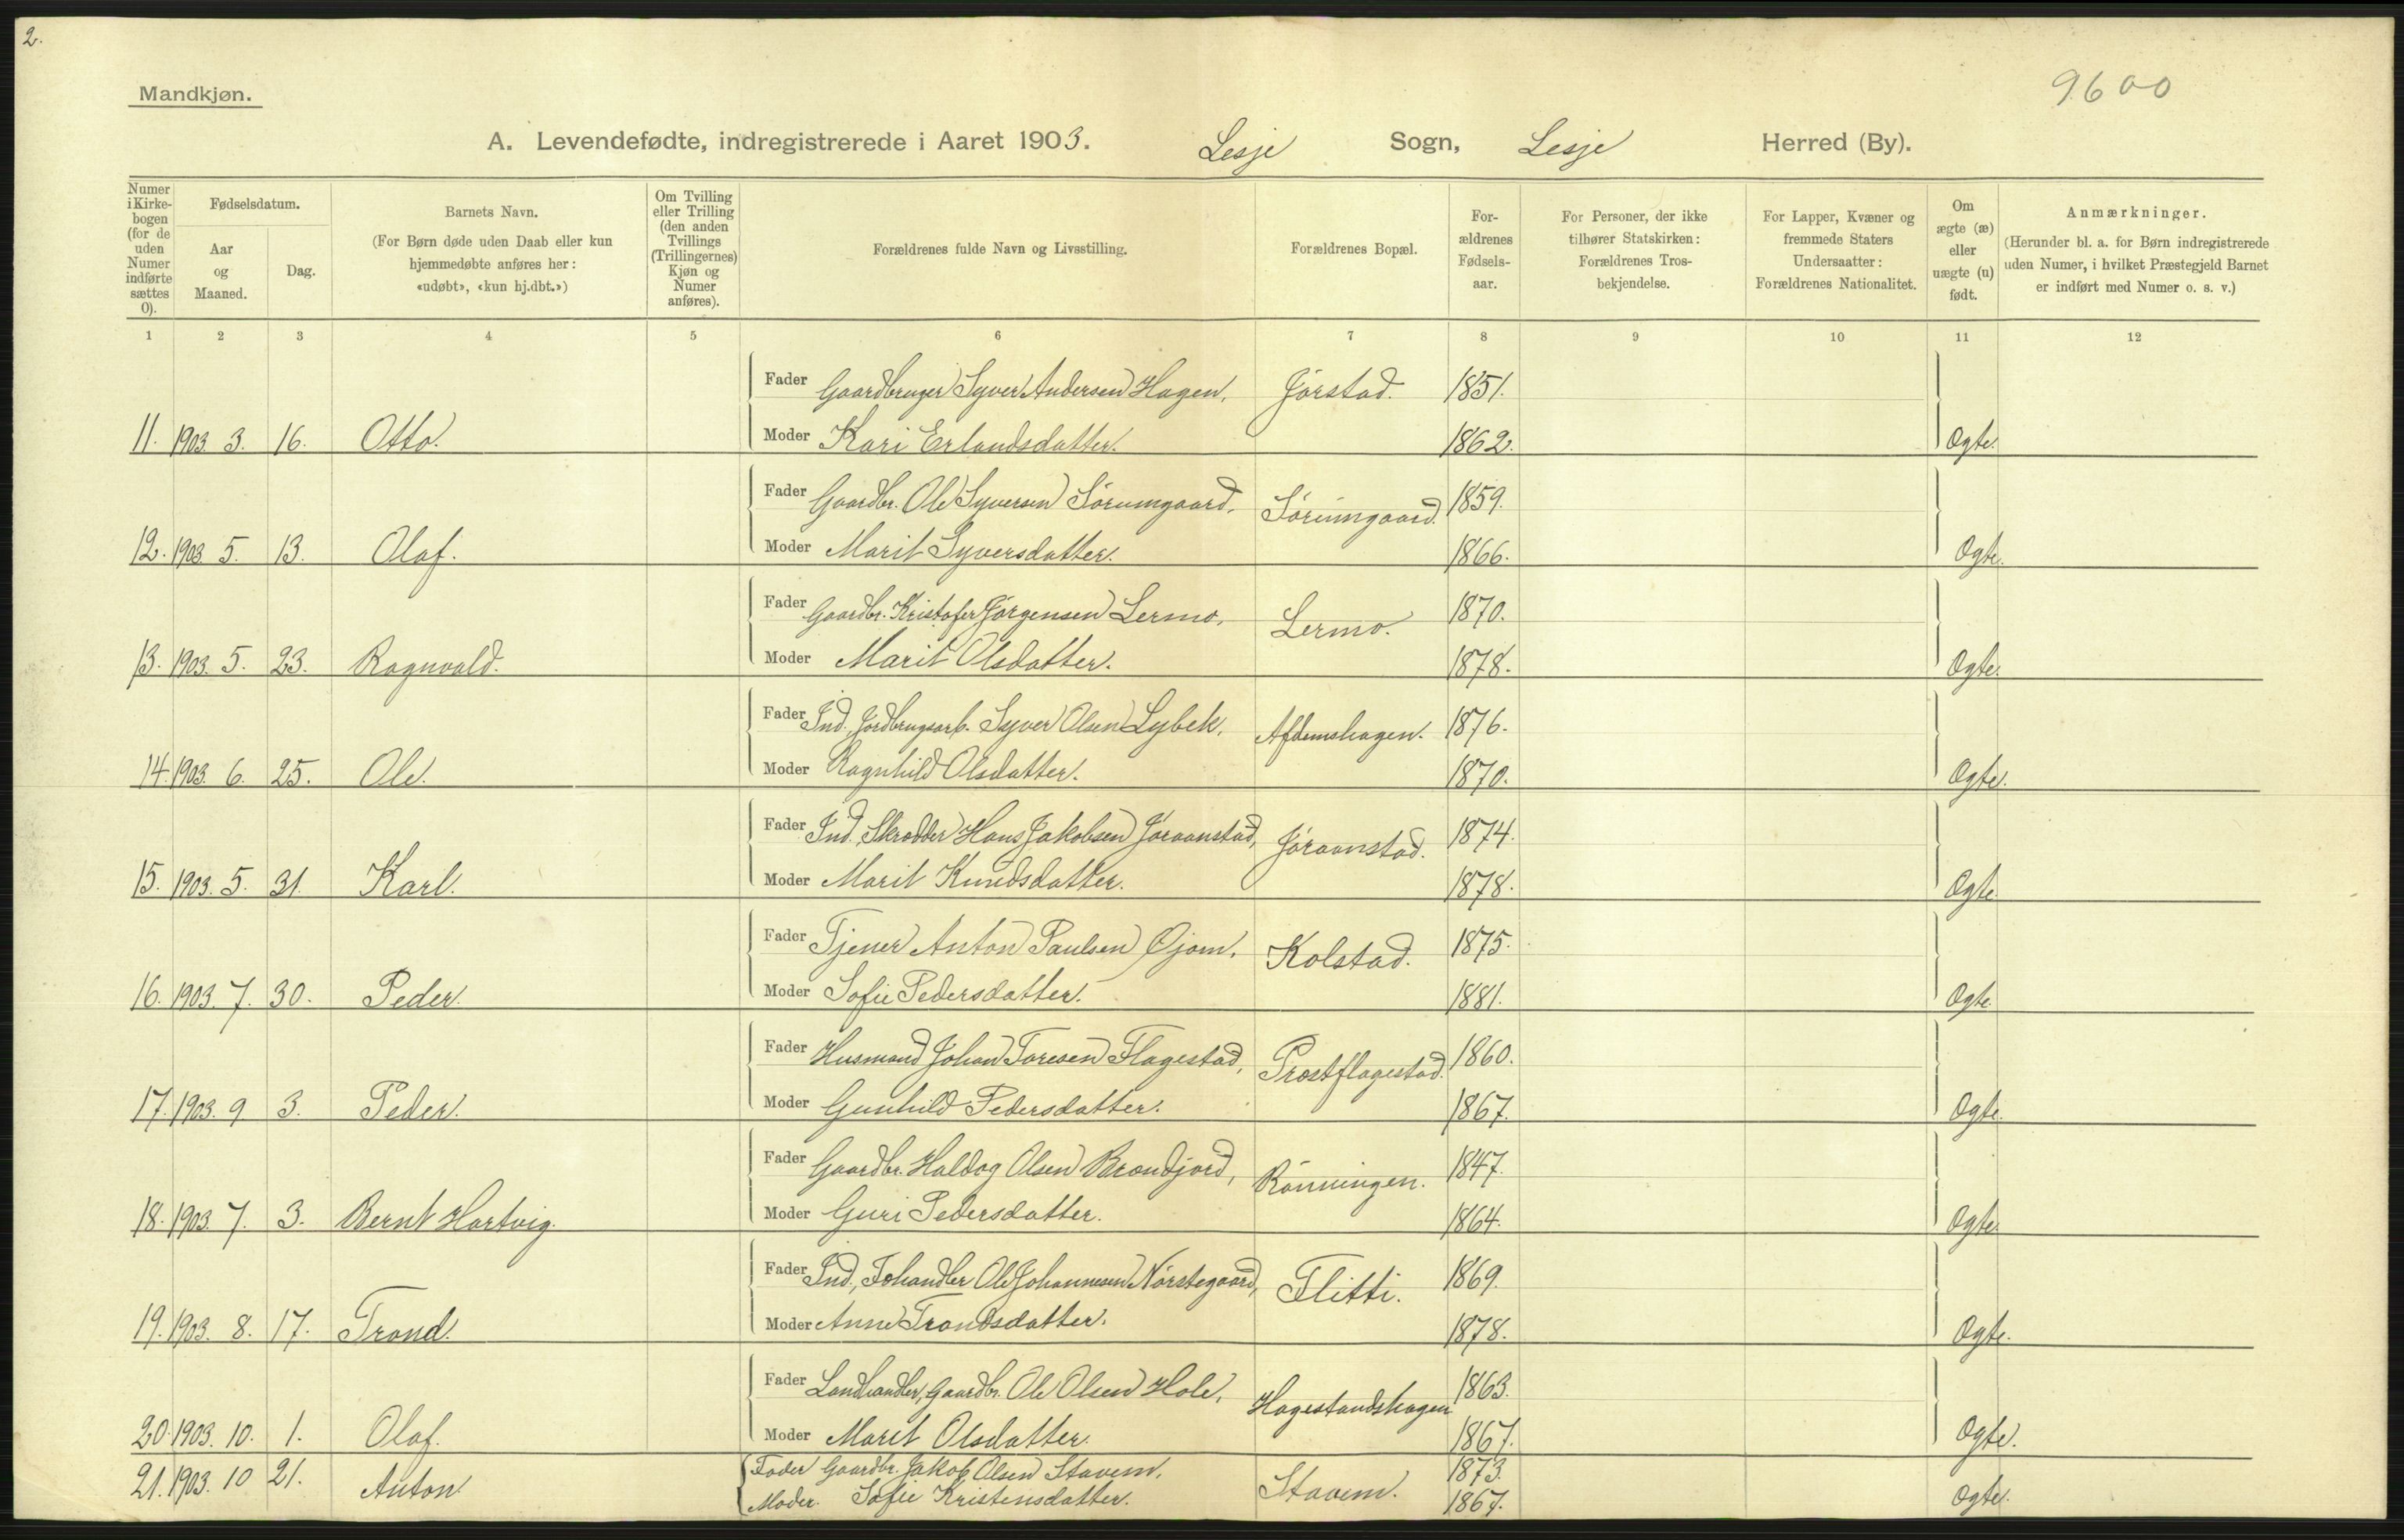 2.
Mandkjøn.
9600
A. Levendefødte, indregistrerede i Aaret 1903. Lesje Sogn, Lesje Herred (By).
Numer i Kirke-bogen (for de uden Numer indførte sættes 0).
Fødselsdatum.
Aar og Maaned.
Dag.
Barnets Navn.
(For Børn døde uden Daab eller kun hjemmedøbte anføres her: «udøbt», «kun hj.dbt.»)
Om Tvilling eller Trilling (den anden Tvillings (Trillingernes) Kjøn og Numer anføres).
Forældrenes fulde Navn og Livsstilling.
Forældrenes Bopæl.
For-ældrenes Fødsels-aar.
For Personer, der ikke tilhører Statskirken: Forældrenes Tros-bekjendelse.
For Lapper, Kvæner og fremmede Staters Undersaatter: Forældrenes Nationalitet.
Om ægte (æ) eller uægte (u) født.
Anmærkninger.
(Herunder bl. a. for Børn indregistrerede uden Numer, i hvilket Præstegjeld Barnet er indført med Numer o. s. v.)
1 2 3 4 5 6 7 8 9 10 11 12
Fader Gaardbruger Syver Andersen Hagen, Jørstad. 1851.
11. 1903. 3. 16. Otto. Moder Kari Erlandsdatter. 1862. Ægte.
Fader Gaardbr. Ole Syversen Sørumgaard, Sørumgaard. 1859.
12. 1903. 5. 13. Olaf. Moder Marit Syversdatter. 1866. Ægte.
Fader Gaardbr. Kristofer Jørgensen Lermo, Lermo. 1870.
13. 1903. 5. 23. Ragnvald. Moder Marit Olsdatter. 1878. Ægte.
Fader Ind. Jordbrugsarb. Syver Olsen Lybek, Afdemshagen. 1876.
14. 1903. 6. 25. Ole. Moder Ragnhild Olsdatter. 1870. Ægte.
Fader Ind. Skrædder Hans Jakobsen Jøraanstad, Jøraanstad. 1874.
15. 1903. 5. 31. Karl. Moder Marit Knudsdatter. 1878. Ægte.
Fader Tjener Anton Paulsen Øjom, Kolstad. 1875.
16. 1903. 7. 30. Peder. Moder Sofie Pedersdatter. 1881. Ægte.
Fader Husmand Johan Toresen Flagestad, Prostflagestad. 1860.
17. 1903. 9 3. Peder. Moder Gunhild Pedersdatter. 1867. Ægte.
Fader Gaardbr. Haldog Olsen Brændjord, Rønningen. 1847.
18. 1903. 7. 3. Bernt Hartvig. Moder Guri Pedersdatter. 1864. Ægte.
Fader Ind., Fehandler Ole Johannesen Nørstegaard, Flitti. 1869.
19. 1903. 8. 17. Trond. Moder Anne Trondsdatter. 1878. Ægte.
Fader Landhandler, Gaardbr. Ole Olsen Hole, Hagestandshagen 1863.
20. 1903. 10. 1. Olaf. Moder Marit Olsdatter. 1867. Ægte.
Fader Gaardbr. Jakob Olsen Stavem, 1873.
21. 1903. 10 21. Anton Moder. Sofie Kristensdatter. Stavem. 1867. Ægte.